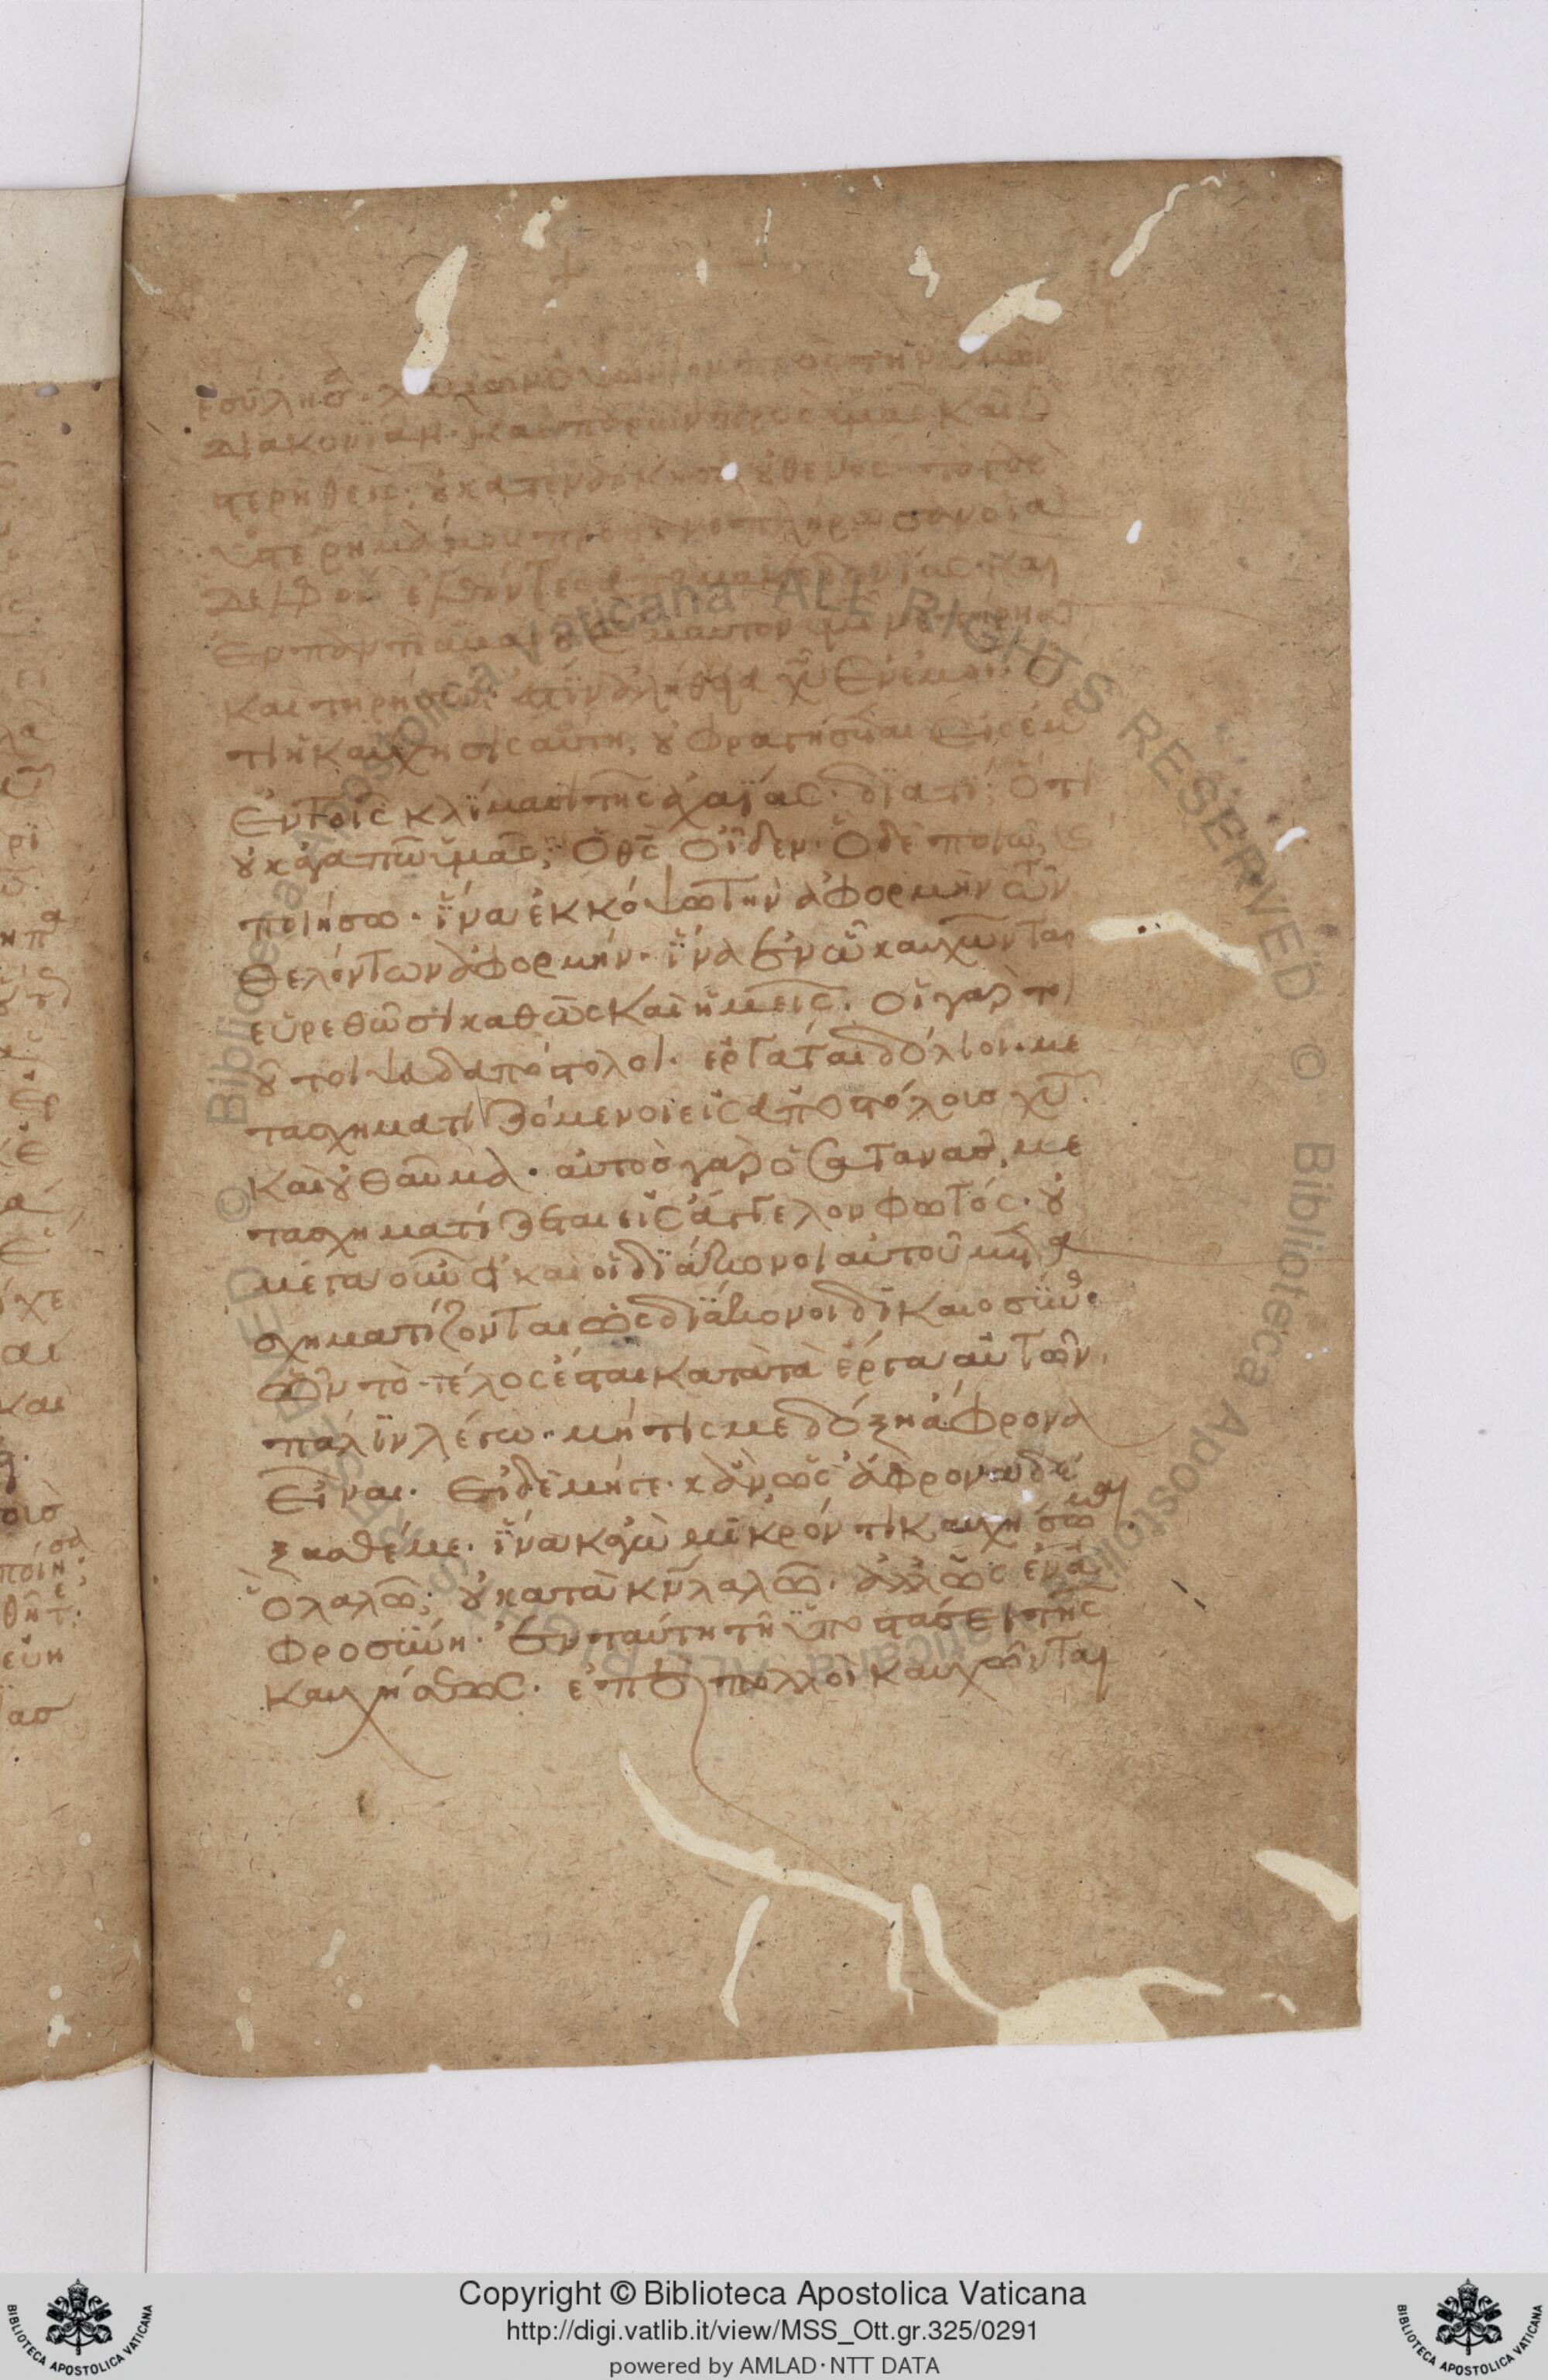 ἐσύλησα· λαβὼν ὀψώνιον πρὸς τὴν ὑμῶν
διακονίαν· καὶ παρὼν πρὸς ὑμᾶς καὶ ὑ
στερηθεὶς· οὐ κατενάρκησα οὐθενός· τὸ γὰρ
ὑστέρημά μου προσανεπλήρωσαν οἱ ἀ
δελφοὶ ἐλθόντες ἀπὸ μακεδονίας· καὶ
ἐν παντὶ ἀβαρῆ ἐμαυτὸν ὑμῖν ἐτήρησα
καὶ τηρήσω· ἔστιν ἀλήθεια χῦ ἐν ἐμοί· ὅ
τι ἡ καύχησις αὕτη, οὐ φραγήσεται εἰς ἐμὲ
ἐν τοῖς κλίμασι τῆς ἀχαΐας· διατί; ὅτι
οὐκ ἀγαπῶ ὑμᾶς; ὁ θς οἶδεν· ὃ δὲ ποιῶ,
ποιήσω· ἵνα ἐκκόψω τὴν ἀφορμὴν τῶν
θελόντων ἀφορμήν· ἵνα ἐν ᾧ καυχῶνται
εὑρεθῶσι καθὼς καὶ ἡμεῖς· οἱ γὰρ τοι
οῦτοι ψευδαπόστολοι· ἐργάται δόλιοι· με
τασχηματιζόμενοι εἰς ἀποστόλοισ χῦ·
καὶ οὐ θαῦμα· αὐτὸσ γὰρ ὁ σατανασ, με
τασχηματίζεται εἰς ἄγγελον φωτός· οὐ
μέγα οὖν εἰ καὶ οἱ διάκονοι αὐτοῦ μετα
σχηματίζονται ὡς διάκονοι δικαιοσύνης·
ὧν τὸ τέλος ἔσται κατὰ τὰ ἔργα αὐτῶν·
πάλιν λέγω· μή τις με δόξη ἄφρονα
εἶναι· εἰ δὲ μήγε· κἂν ὡς ἄφρονα δέ
ξασθέ με· ἵνα κἀγὼ μικρόν τι καυχήσωμαι·
ὃ λαλῶ; οὐ κατὰ κν λαλῶ· ἀλλ' ὡς ἐν ἀ
φροσύνη· ἐν ταύτη τῆ ὑποστάσει τῆς
καυχήσεως· ἐπεὶ πολλοὶ καυχῶνται
Copyright © Biblioteca Apostolica Vaticana
http://digi.vatlib.it/view/MSS_Ott.gr.325/0291
powered by AMLAD·NTT DATA